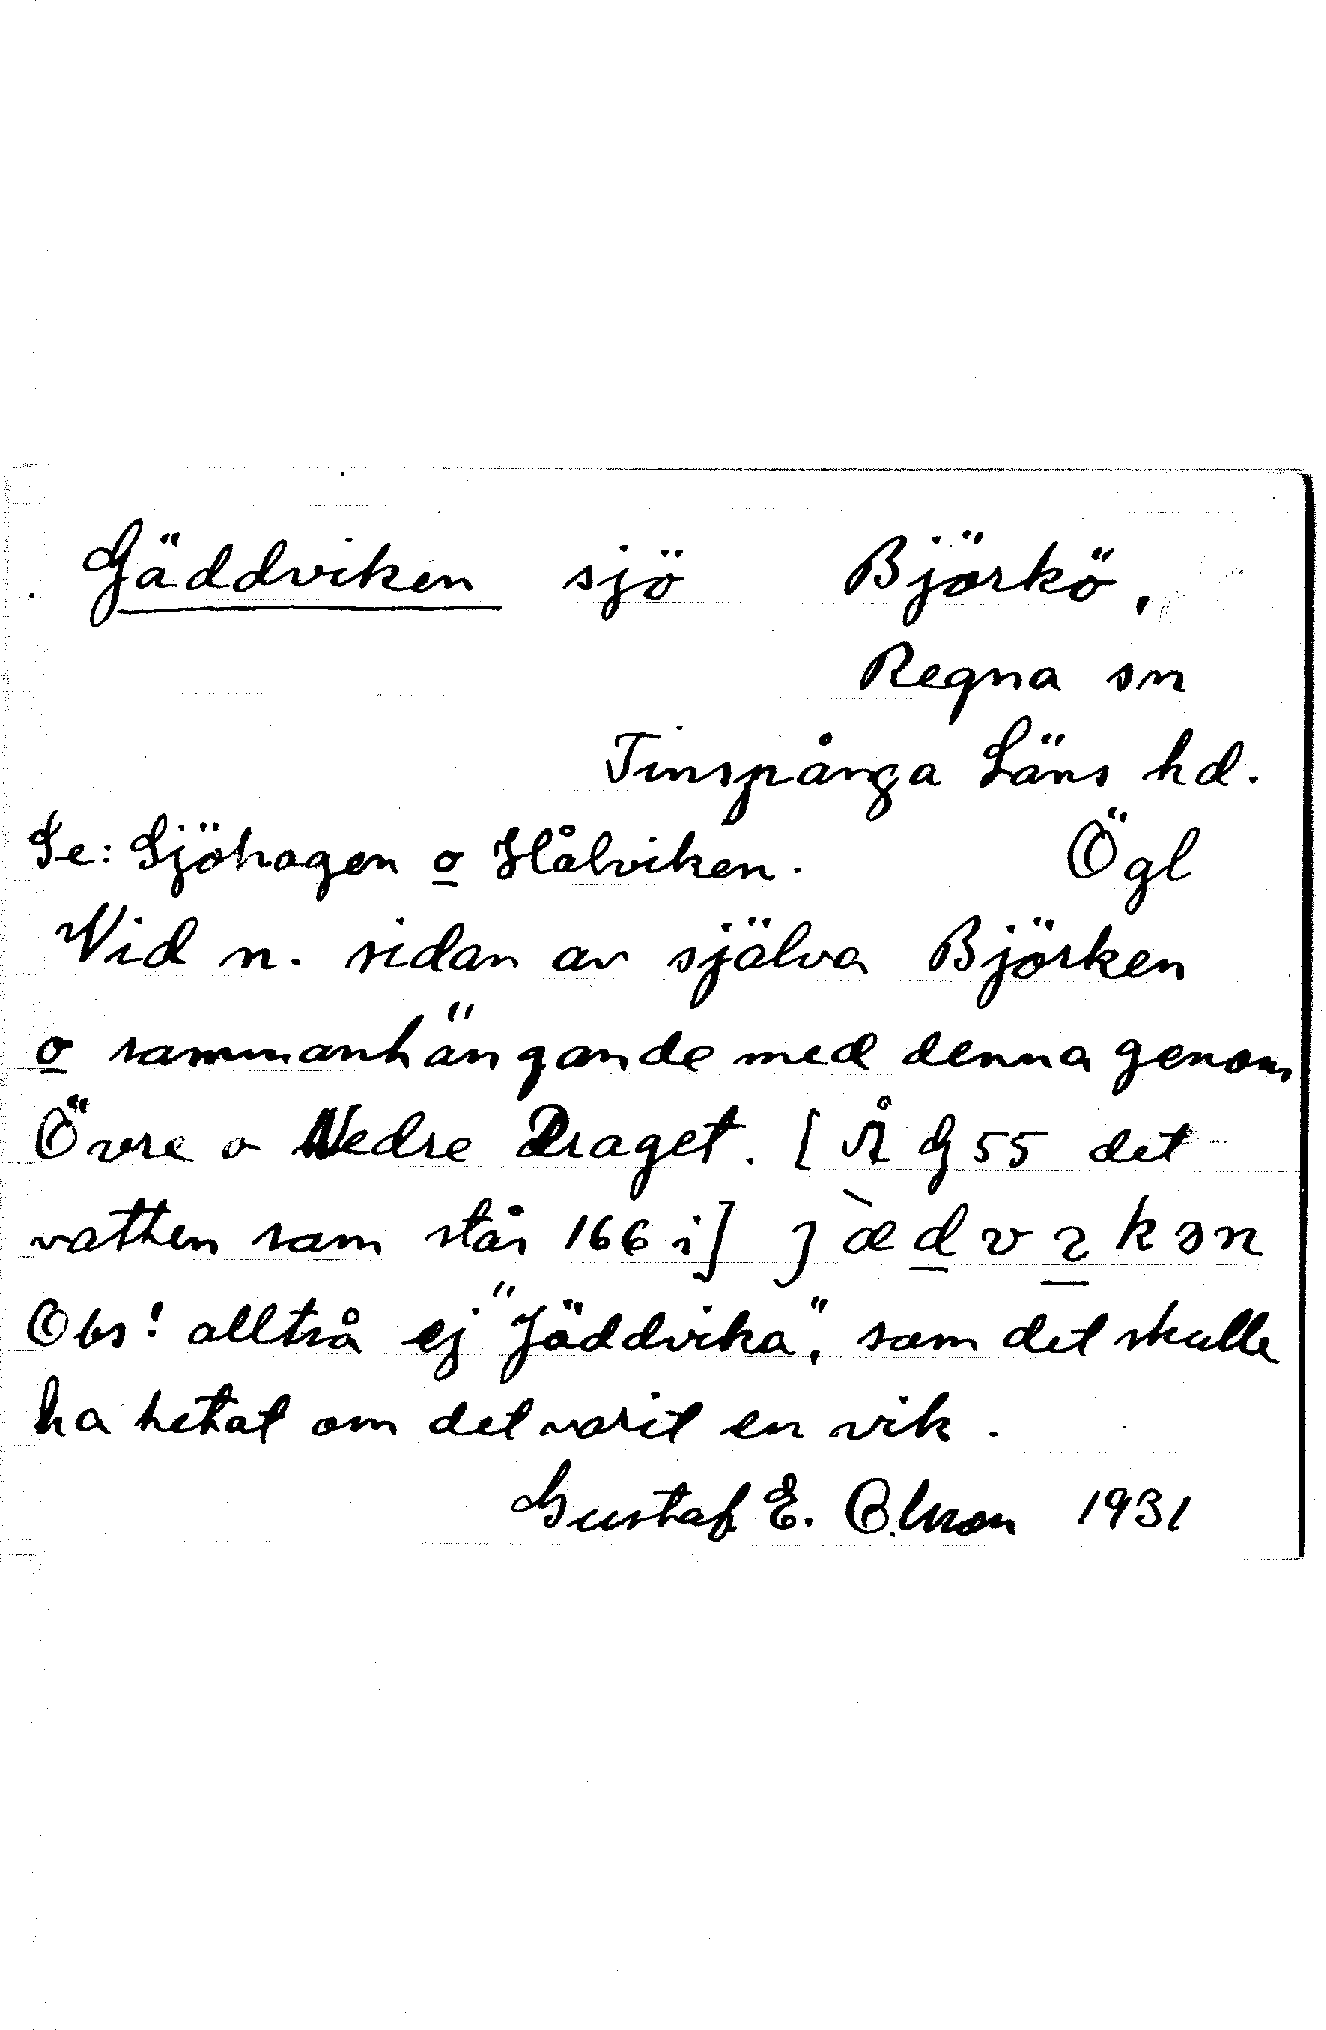 Gäddviken sjö Björkö,
Regna sn
Finspånga Läns hd.
Se: Sjöhagen o Hålviken. Ögl
Vid n. sidan av själva Björken
o sammanhängande med denna genom
Övre o Nedre Draget. [Å G 55 det
vatten som står 166 i] j æ̀ d v ɿ k ə n
Obs! alltså ej "Jäddvika", som det skulle
ha hetat om det varit en vik.
Gustaf E. Olsson 1931